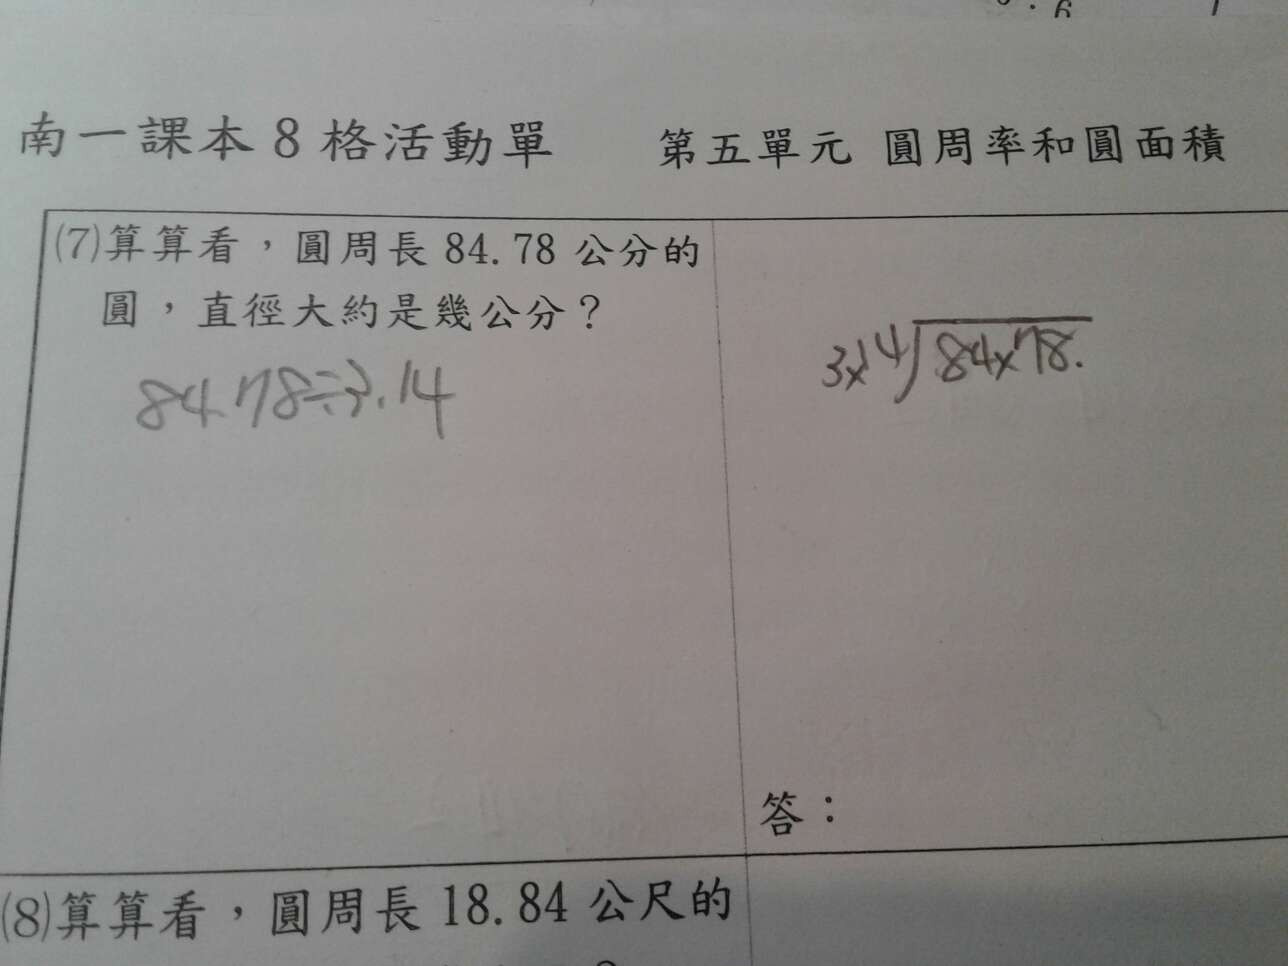 南一課本 8 格活動單 第五單元 圓周率和圓面積
(7)算算看，圓周長 84.78 公分的
圓，直徑大約是幾公分？
84.78÷3.14
3x14)84x78.
答：
(8)算算看，圓周長 18.84 公尺的